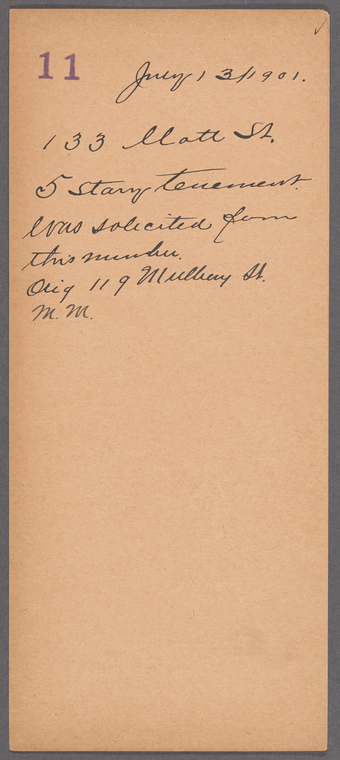 11
July 13/1901.
133 Mott St.
5 story tenement.
Was solicited from
this number.
Orig 119 Mulbery St.
M. M.